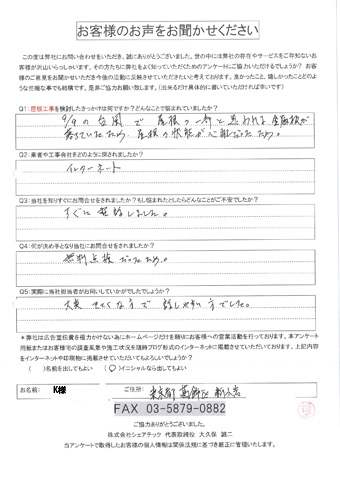 お客様のお声をお聞かせください
この度は弊社にお問い合わせをいただき、誠にありがとうございました。世の中には弊社の存在やサービスをご存知ないお
客様が沢山いらっしゃいます。その方たちに弊社をよく知っていただくためのアンケートにご協力いただけるでしょうか？ お客
様のご意見をお聞かせいただき今後の活動に反映させていただきたいと考えております。良かったこと、嬉しかったことどのよ
うな些細な事でも結構です。是非ご協力お願い致します。（出来るだけ具体的に書いていただければ幸いです）
Q1:屋根工事を検討したきっかけは何ですか？どんなことで悩まれていましたか？
9/9の台風で屋根の一部と思われる金属板が
落ちていたため、屋根の状態が心配だったため。
Q2:業者や工事会社をどのように探されましたか？
インターネット
Q3:当社を知りすぐにお問合せをされましたか？もし悩まれたとしたらどんなことがご不安でしたか？
すぐに電話しました。
Q4:何が決め手となり当社にお問合せをされましたか？
無料点検だったため。
Q5:実際に当社担当者がお伺いしていかがでしたでしょうか？
大変 な方で 話しやすい方でした。
＊弊社は広告宣伝費を極力かけない為にホームページだけを頼りにお客様への営業活動を行っております。本アンケート
用紙またはお客様宅の調査風景や施工状況を随時ブログ形式のインターネットに掲載させていただいております。上記内容
をインターネットや印刷物に掲載させていただいてもよろしいでしょうか？
（　）名前を出してもよい　（○）イニシャルなら出してもよい
お名前:　K様　ご住所:　東京都 葛飾区
FAX 03-5879-0882
ご協力ありがとうございました。
株式会社シェアテック 代表取締役 大久保 誠二
当アンケートで取得したお客様の個人情報は関係法規に基づき厳正に管理いたします。